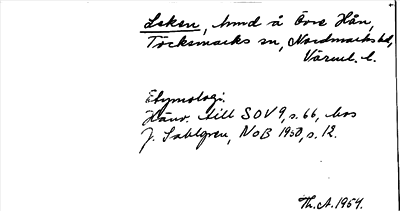 Leken, sund å Övre Hån,
Töcksmarks sn, Nordmarks hd,
Värml. l.
Etymologi.
Hänv. till SOV 9, s. 66, hos
J. Sahlgren, NoB 1950, s. 12.
Th. A. 1954.